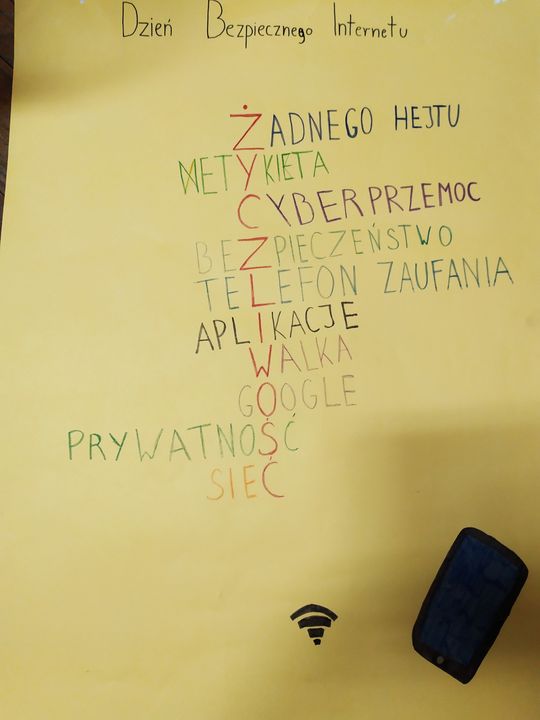 Dzień Bezpiecznego Internetu
ŻADNEGO HEJTU
NETYKIETA
CYBERPRZEMOC
BEZPIECZEŃSTWO
TELEFON ZAUFANIA
APLIKACJE
WALKA
GOOGLE
PRYWATNOŚĆ
SIEĆ